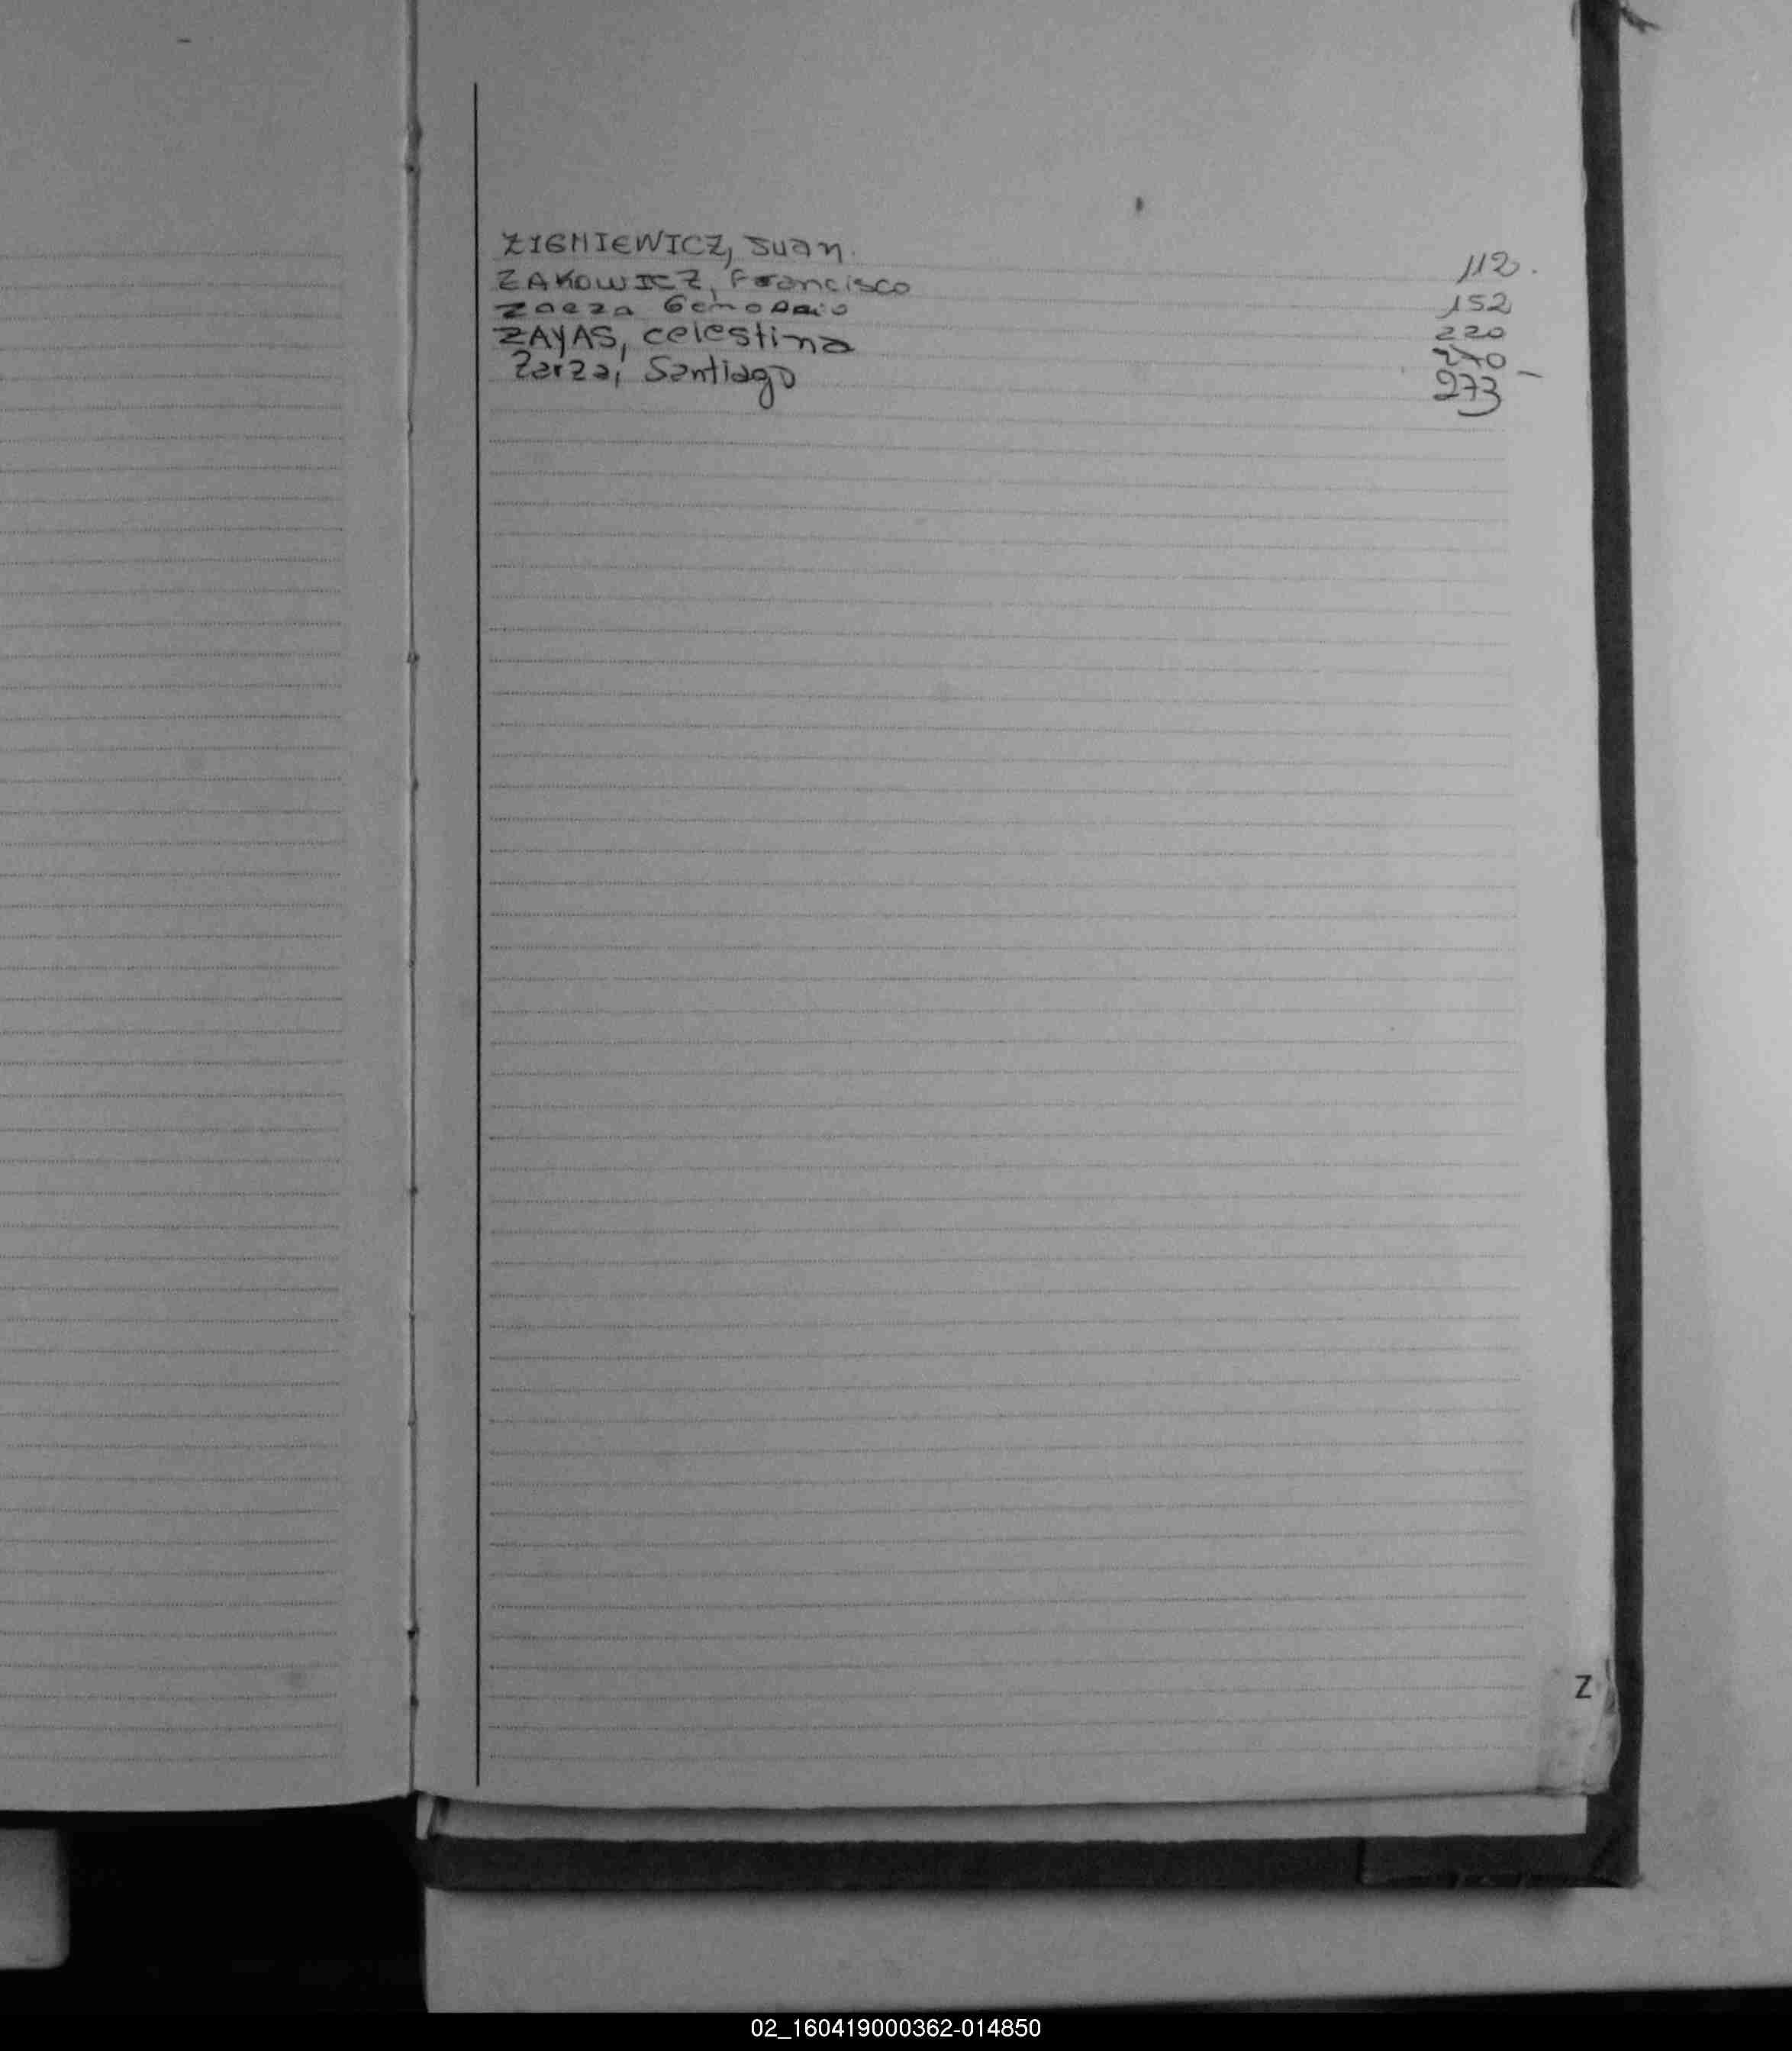 ZIGNIEWICZ, Juan. 112.
ZAKOWICZ, Francisco 152
Zarza Genodaio 220
ZAYAS, celestina 270
Zarza, Santiago 273 –
Z
02_160419000362-014850